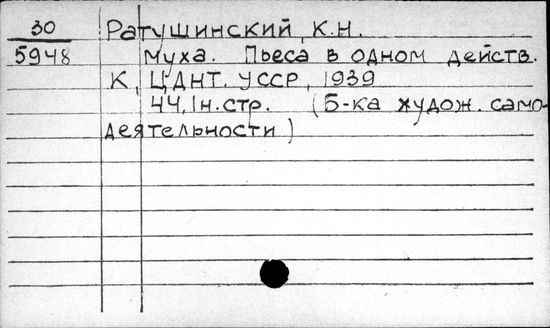 30 Ратушинский, К.Н.
5948 Муха. Пьеса в одном действ.
К, ЦДНТ. УССР, 1939
44,1н.стр. (Б-ка худож. само-
деятельности)